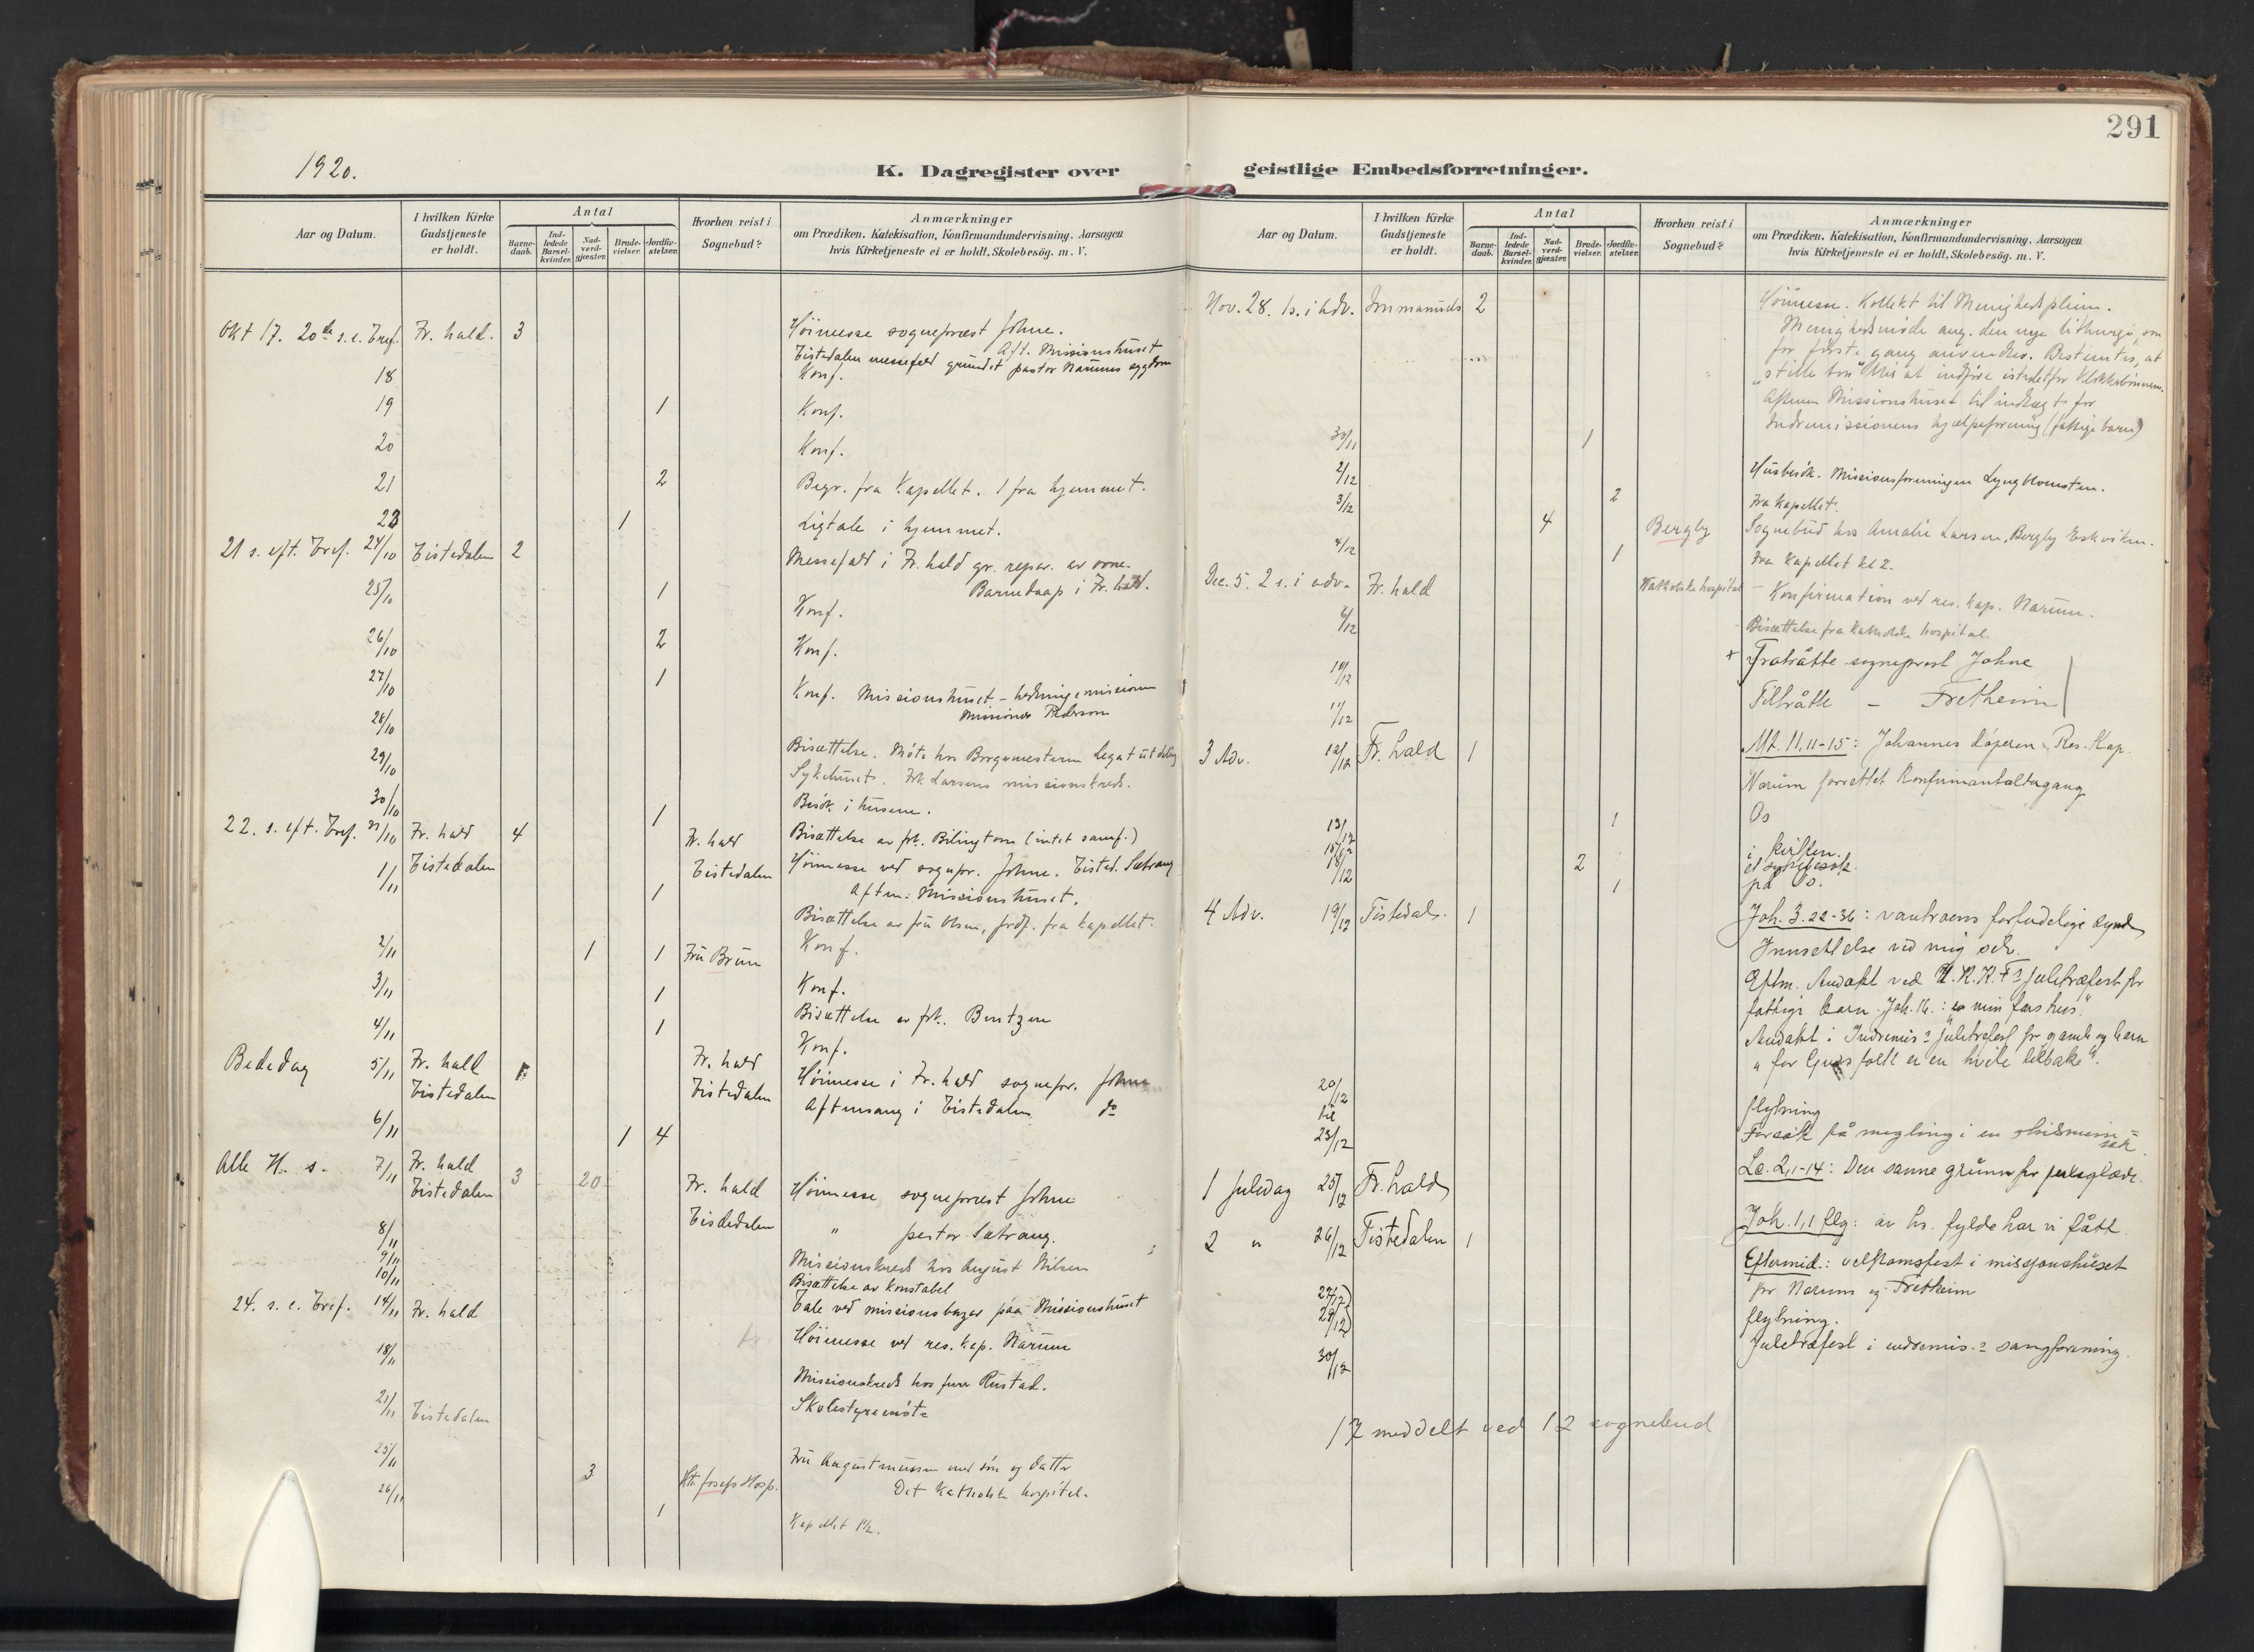 291
1920.
K. Dagregister over geistlige Embedsforretninger.
Aar og Datum.
I hvilken Kirke Gudstjeneste er holdt.
Antal
Barnedaab.
Indledede Barselkvinder.
Nadverdgjæster.
Brudevielser.
Jordfæstelser.
Hvorhen reist i Sognebud?
Anmærkninger
om Prædiken, Katekisation, Konfirmandundervisning, Aarsagen
hvis Kirketjeneste ei er holdt, Skolebesøg. m. V.
Okt 17. 20de s. e. Tref. Fr. hald. 3 Høimesse sogneprest Johne.
Aft. Missionshuset
Tistedalen messefald grundet pastor Narums sygdom
18 Konf.
19 1 Konf.
20 Konf.
21 2 Begr. fra Kapellet. 1 fra hjemmet.
23 1 Ligtale i hjemmet.
21 s. eft. Tref. 24/10 Tistedalen 2 Messefald i Fr. hald gr. repar. av ovne.
Barnedaap i Fr. hald.
25/10 1 Konf.
26/10 2 Konf.
27/10 1 Konf. Missionshuset - hedningemissionen
28/10 Missionær Pedersen
29/10 Bisættelse. Møte hos Borgermesteren Legatutdeling
Sykehuset. Frk Larsens missionskreds.
30/10 1 Besøk i husene.
22. s. eft. Tref. 31/10 Fr. hald 4 Fr. hald Bisættelse av frk. Bilington (intet samf.)
Tistedalen Tistedalen Høimesse ved sognepr. Johne. Tisted. Sætrang
1/11 1 Aften: Missionshuset.
Bisættelse av fru Olsen, jrdf. fra kapellet.
2/11 1 1 Fru Brun Konf.
3/11 1 Konf.
4/11 1 Bisættelse av frk. Berntzen
Konf.
Bededag 5/11 Fr. hald Fr. hald Høimesse i Fr. hald sognepr. Johne
Tistedalen Tistedalen Aftensang i Tistedalen do
6/11 1 4
Alle H. s. 7/11 Fr. hald 3 20 Fr. hald Høimesse sogneprest Johne
Tistedalen Tistedalen " pastor Sætrang.
8/11 Missionskreds hos August Nilsen
9/11 Bisættelse av konstabel
10/11 Tale ved missionsbazar paa Missionshuset
24. s. e. Tref. 14/11 Fr. hald Høimesse ved res. kap. Narum
18/11 Missionskreds hos fru Rustad.
21/11 Tistedalen Skolestyremøte
25/11 3 St. Josefs Hosp. Fru Augustinusen med søn og datter
Det Katholske hospital.
26/11 1 Kapellet 1½.
Aar og Datum.
I hvilken Kirke Gudstjeneste er holdt.
Antal
Barnedaab.
Indledede Barselkvinder.
Nadverdgjæster.
Brudevielser.
Jordfæstelser.
Hvorhen reist i Sognebud?
Anmærkninger
om Prædiken, Katekisation, Konfirmandundervisning, Aarsagen
hvis Kirketjeneste ei er holdt, Skolebesøg. m. V.
Nov. 28. 1s. i Adv. Immanuels 2 Høimesse. Kollekt til Menighedspleien.
Menighedsmøde ang. den nye lithurgi, som
for første gang anvendtes. Bestemtes, at
"stille bøn" blir at indføre istedetfor Klokkerbønnen.
Aftenen Missionshuset til indtægt for
Indremissionens hjælpeforening (fattige barn)
30/11 1
2/12 Husbesøk. Missionsforeningen Lyngblomsten.
3/12 2 Fra kapellet.
4 Bergby Sognebud hos Amalie Larsen, Bergby Eskviken.
4/12 1 Fra Kapellet kl 2.
Dec. 5. 2 s. i adv. Fr. hald Katholske hospital - Konfirmation ved res. kap. Narum.
6/12 Bisættelse fra Katholske hospital.
10/12 + Fratrådte sogneprest Johne
11/12 Tiltrådte - Fretheim
3 Adv. 12/12 Fr. hald 1 Mt. 11, 11-15: Johannes døperen. Res. Kap.
Narum forrettet Konfirmantaltergang
13/12 1 Os
15/12 i kirken.
et sykebesøk.
18/12 2 1 på Os.
4 Adv. 19/12 Tistedal. 1 Joh. 3. 22-36: vantroens forferdelige synd
Innsettelse ved mig selv.
Eftm. Andakt ved K.K.K.Fs juletræfest for
fattige barn. Joh. 14.: "min fars hus".
Andakt i Indremis.s juletrefest for gamle og barn
"for Guds folk er en hvile tilbake".
20/12 til 23/12 flytning
Forsøk på megling i en skilsmissesak.
1 juledag 25/12 Fr. hald Lc. 2, 1-14: Den sanne grunn for juleglæde.
2 " 26/12 Tistedalen 1 Joh. 1,1 flg: av hs. fylde har vi fått
Eftermid.: velkomsfest i missjonshuset
for Narum og Fretheim
27/12 29/12 flytning.
30/12 Juletræfest i indremis.s sangforening.
17 meddelt ved 12 sognebud